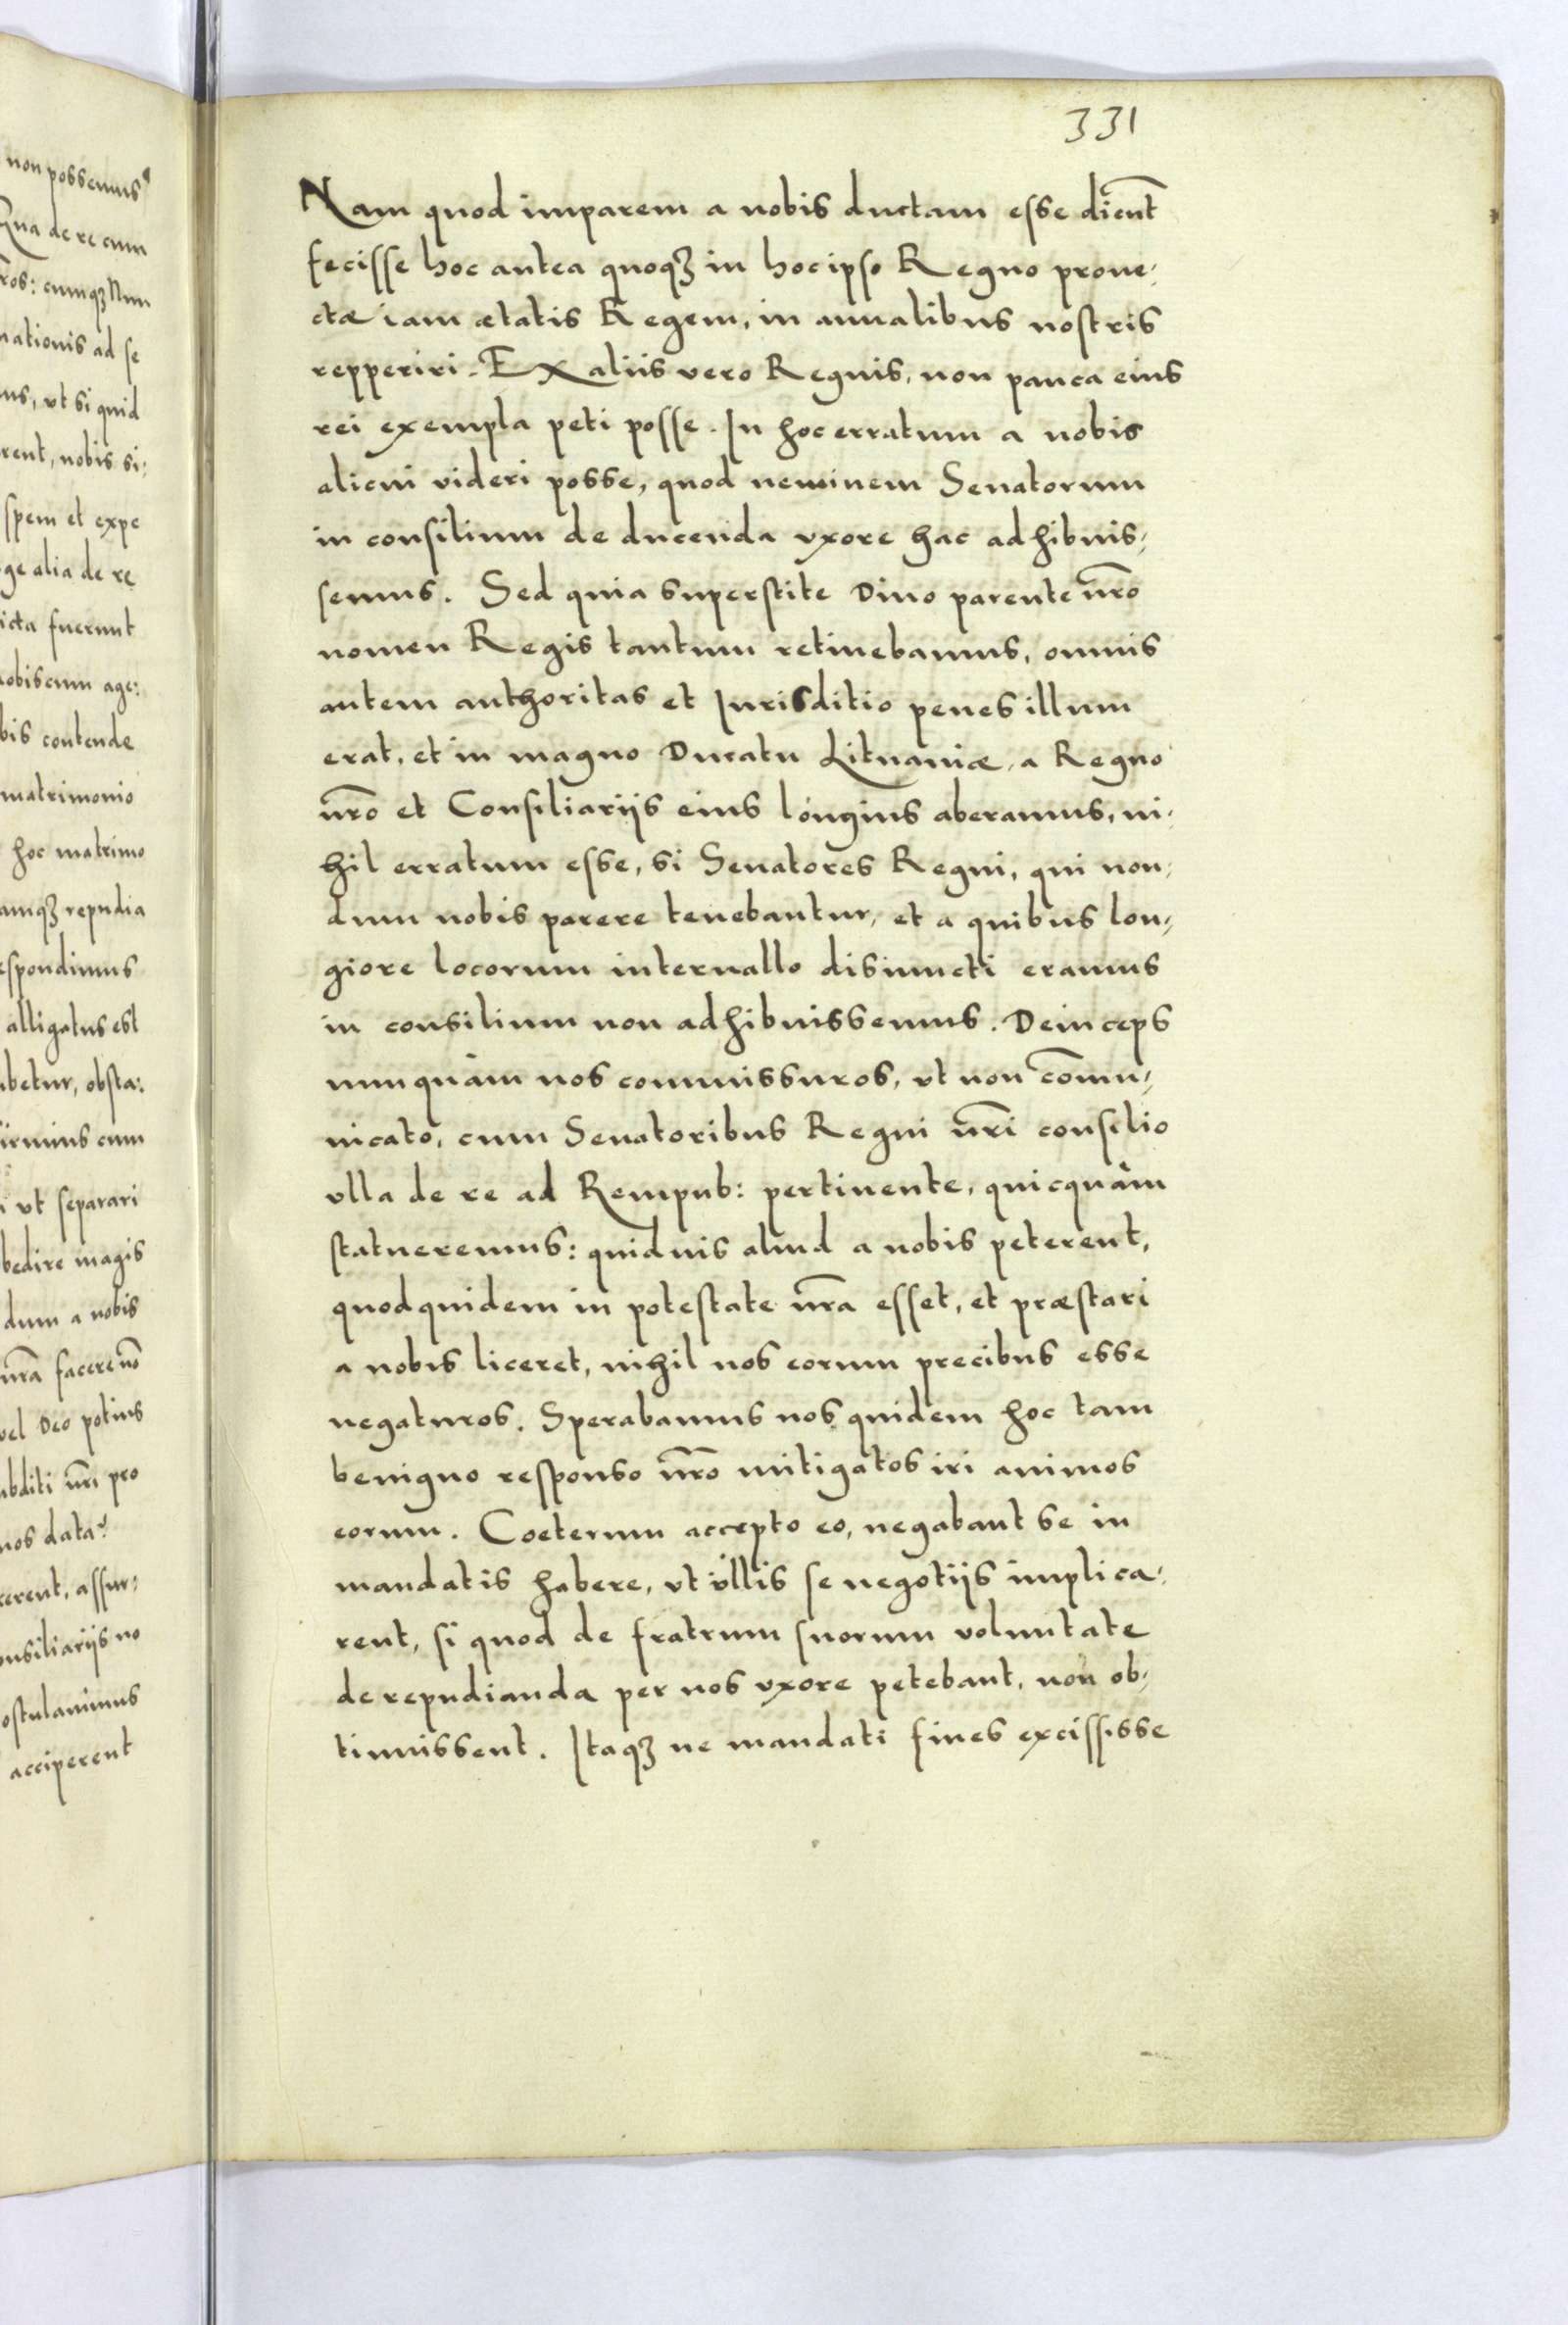 non possemus
Qua de re cum
ros: cumqꝫ Nun
nationis ad se
us, vt si quid
rent, nobis si:
spem et expe
ge alia de re
icta fuerunt
obiscum age:
bis contende
matrimonio
hoc matrimo
amqꝫ repudia
espondimus
alligatus est
betur, obsta:
irmius cum
vt separari
bedire magis
dum a nobis
nr̃a facere nõ
vel Deo potius
bditi nr̃i pro
nos data?
rerent, assur:
onsiliarijs no
ostulauimus
acciperent
331
Nam quod imparem a nobis ductam esse dicũt
fecisse hoc antea quoqꝫ in hoc ipso Regno proue,
ctæ iam ætatis Regem, in annalibus nostris
repperiri. Ex aliis vero Regnis, non pauca eius
rei exempla peti posse. In hoc erratum a nobis
alicui videri posse, quod neminem Senatorum
in consilium de ducenda vxore hac adhibuis,
semus. Sed quia superstite Diuo parente nr̃o
nomen Regis tantum retinebamus, omnis
autem authoritas et Jurisditio penes illum
erat, et in magno Ducatu Lituaniæ, a Regno
nr̃o et Consiliarijs eius longius aberamus, ni,
hil erratum esse, si Senatores Regni, qui non,
dum nobis parere tenebantur, et a quibus lon,
giore locorum interuallo disiuncti eramus
in consilium non adhibuissemus. Deinceps
nunquàm nos commissuros, vt non com̃u,
nicato, cum Senatoribus Regni nr̃i consilio
vlla de re ad Rempub: pertinente, quicquàm
statueremus: quiduis aliud a nobis peterent,
quod quidem in potestate nr̃a esset, et præstari
a nobis liceret, nihil nos eorum precibus esse
negaturos. Sperabamus nos quidem hoc tam
benigno responso nr̃o mitigatos iri animos
eorum. Coeterum accepto eo, negabant se in
mandatis habere, vt vllis se negotijs implica,
rent, si quod de fratrum suorum voluntate
de repudianda per nos vxore petebant, non ob,
tinuissent. Itaqꝫ ne mandati fines excississe